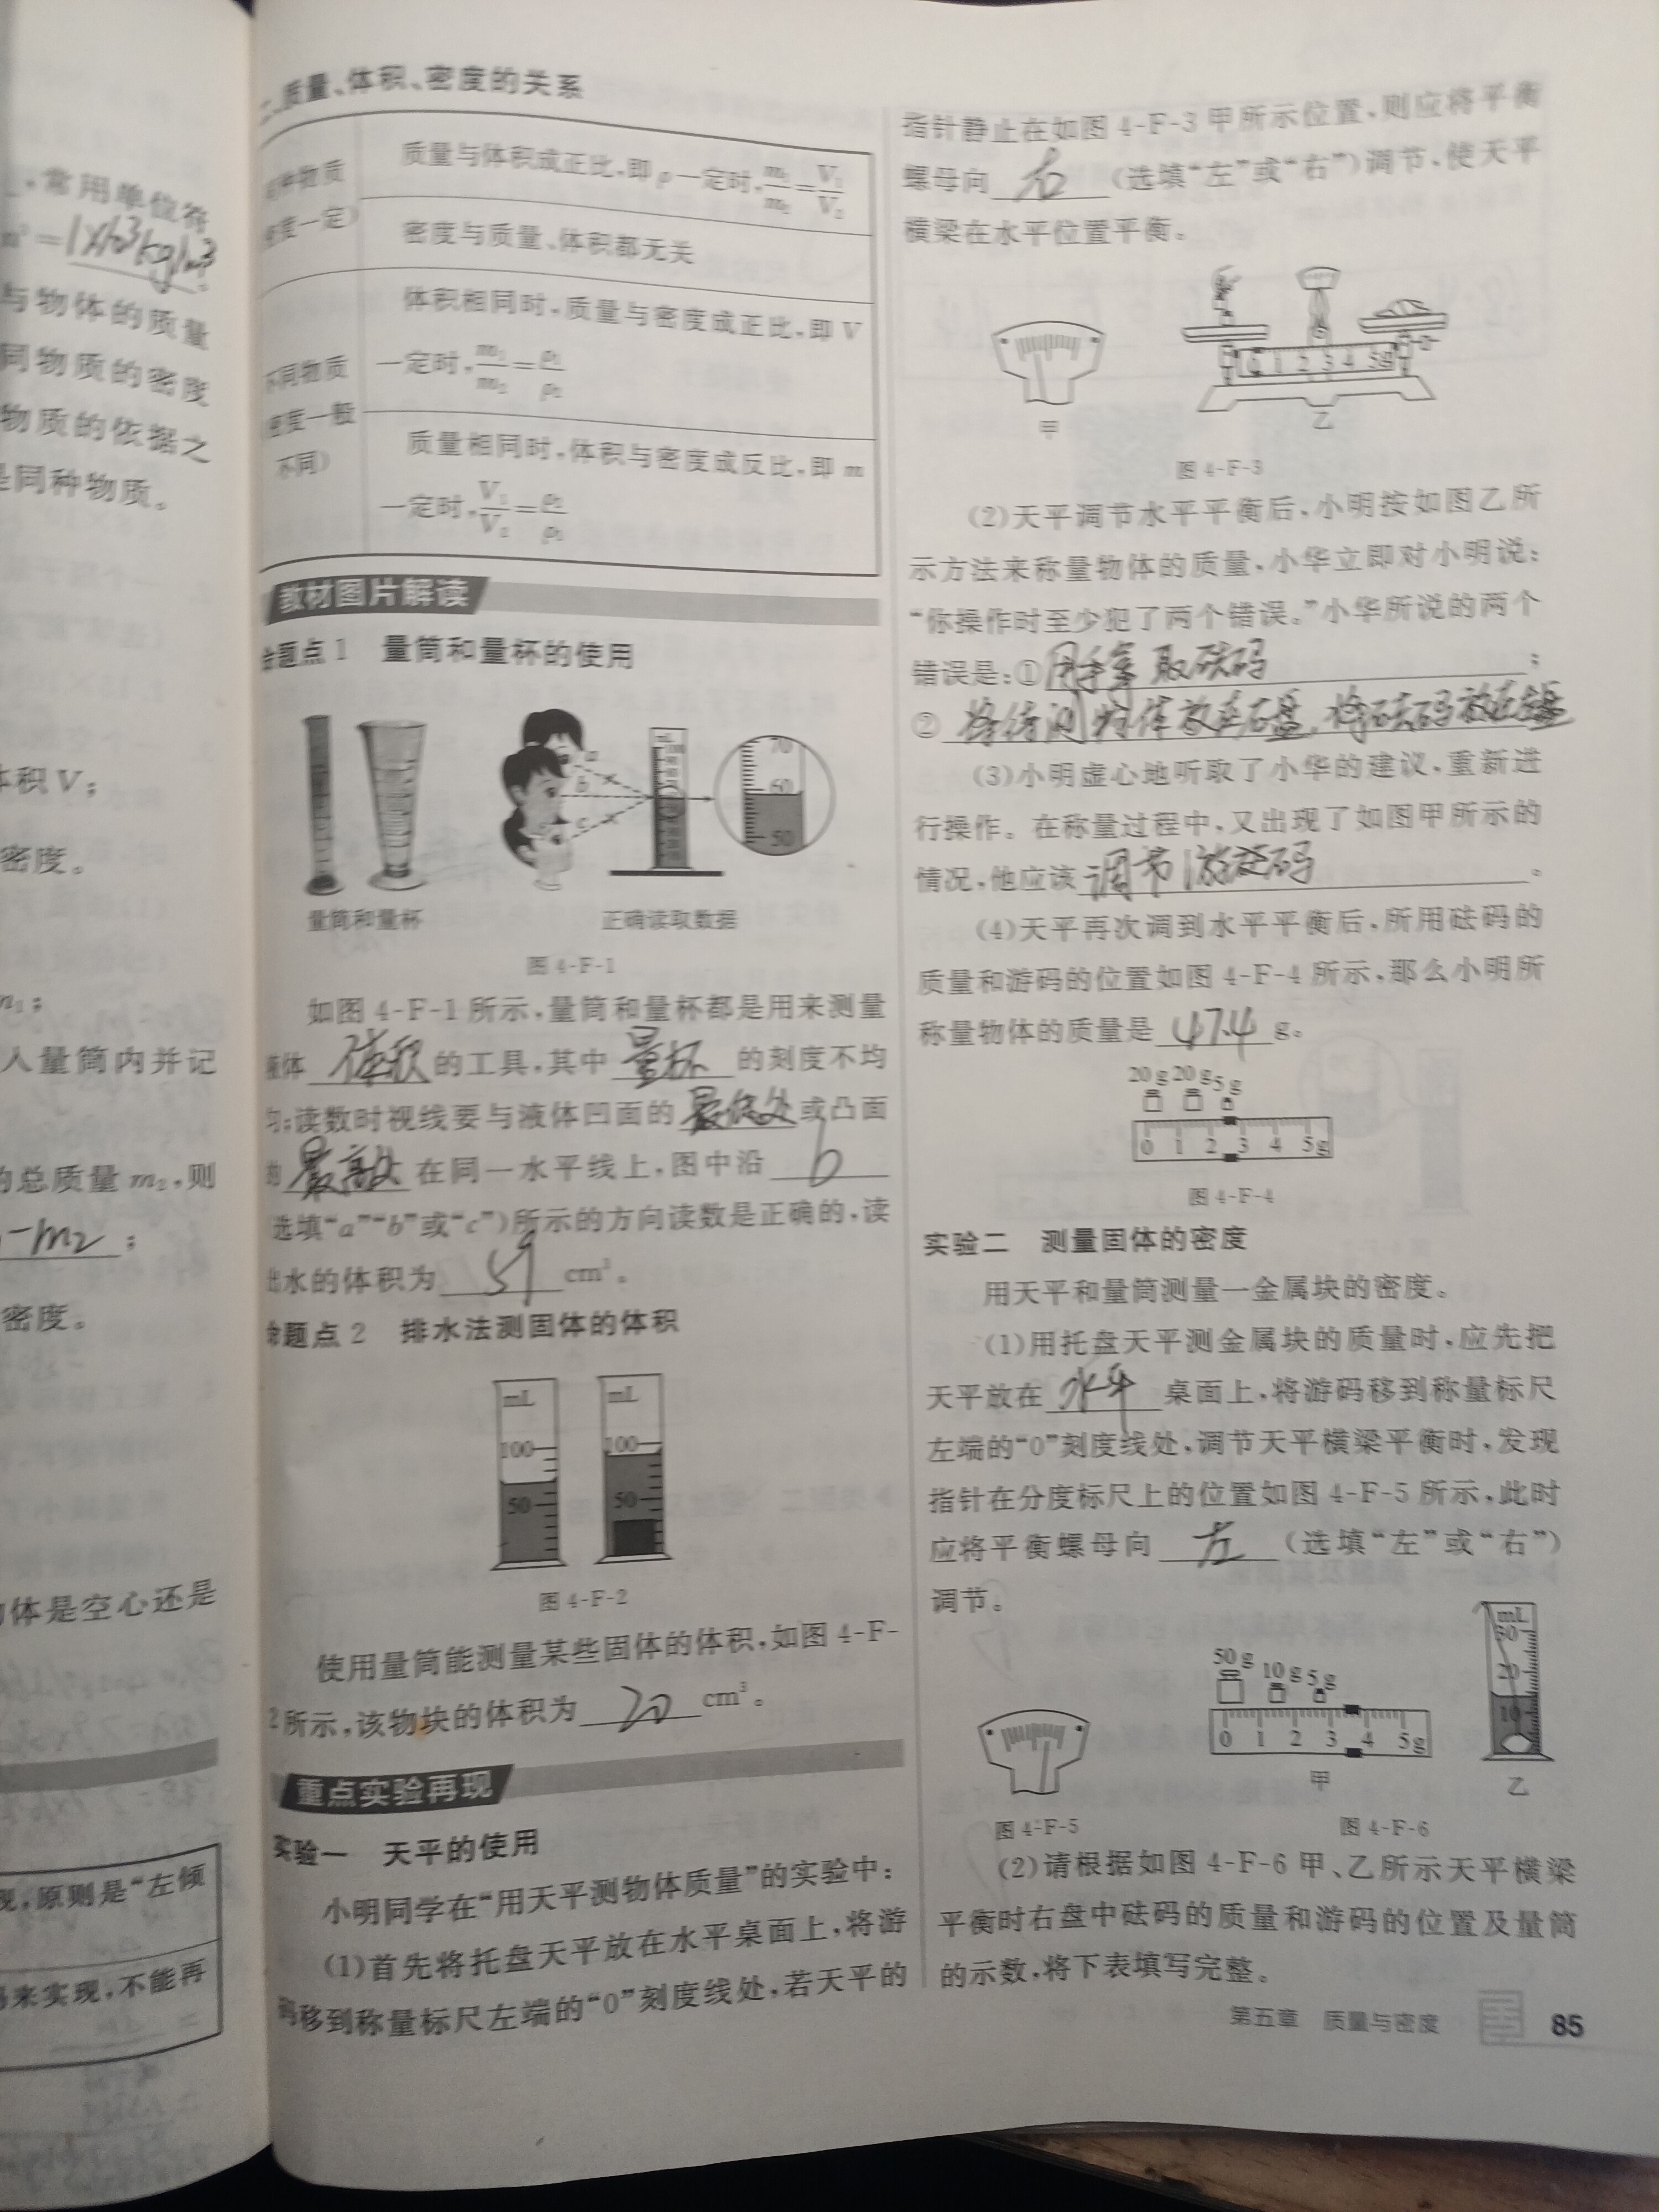 ,常用单位符
m³=1×10³kg/m³
与物体的质量
同物质的密度
物质的依据之
是同种物质。
体积V;
密度。
m₁;
入量筒内并记
的总质量m₂,则
-m₂;
密度。
物体是空心还是
现,原则是“左倾
码来实现,不能再
、质量、体积、密度的关系
同种物质
密度一定)
质量与体积成正比,即ρ一定时,m₁/m₂=V₁/V₂
密度与质量、体积都无关
不同物质
密度一般
不同)
体积相同时,质量与密度成正比,即V
一定时,m₁/m₂=ρ₁/ρ₂
质量相同时,体积与密度成反比,即m
一定时,V₁/V₂=ρ₂/ρ₁
教材图片解读
命题点1 量筒和量杯的使用
a
b
c
mL
70
60
50
量筒和量杯
正确读取数据
图4-F-1
如图4-F-1所示,量筒和量杯都是用来测量
液体体积的工具,其中量杯的刻度不均
匀;读数时视线要与液体凹面的最低处或凸面
的最高处在同一水平线上,图中沿b
选填“a”“b”或“c”)所示的方向读数是正确的,读
出水的体积为59cm³。
命题点2 排水法测固体的体积
mL
100
50
mL
100
50
图4-F-2
使用量筒能测量某些固体的体积,如图4-F-
2所示,该物块的体积为20cm³。
重点实验再现
实验一 天平的使用
小明同学在“用天平测物体质量”的实验中:
(1)首先将托盘天平放在水平桌面上,将游
码移到称量标尺左端的“0”刻度线处,若天平的
指针静止在如图4-F-3甲所示位置,则应将平衡
螺母向右(选填“左”或“右”)调节,使天平
横梁在水平位置平衡。
0 1 2 3 4 5g
甲
乙
图4-F-3
(2)天平调节水平平衡后,小明按如图乙所
示方法来称量物体的质量,小华立即对小明说:
“你操作时至少犯了两个错误。”小华所说的两个
错误是:①用手拿取砝码;
②将待测物体放在右盘,将砝码放在左盘
(3)小明虚心地听取了小华的建议,重新进
行操作。在称量过程中,又出现了如图甲所示的
情况,他应该调节游砝码。
(4)天平再次调到水平平衡后,所用砝码的
质量和游码的位置如图4-F-4所示,那么小明所
称量物体的质量是47.4g。
20g 20g 5g
0 1 2 3 4 5g
图4-F-4
实验二 测量固体的密度
用天平和量筒测量一金属块的密度。
(1)用托盘天平测金属块的质量时,应先把
天平放在水平桌面上,将游码移到称量标尺
左端的“0”刻度线处,调节天平横梁平衡时,发现
指针在分度标尺上的位置如图4-F-5所示,此时
应将平衡螺母向左(选填“左”或“右”)
调节。
图4-F-5
50g 10g 5g
0 1 2 3 4 5g
甲
mL
30
20
10
乙
图4-F-6
(2)请根据如图4-F-6甲、乙所示天平横梁
平衡时右盘中砝码的质量和游码的位置及量筒
的示数,将下表填写完整。
第五章 质量与密度 85